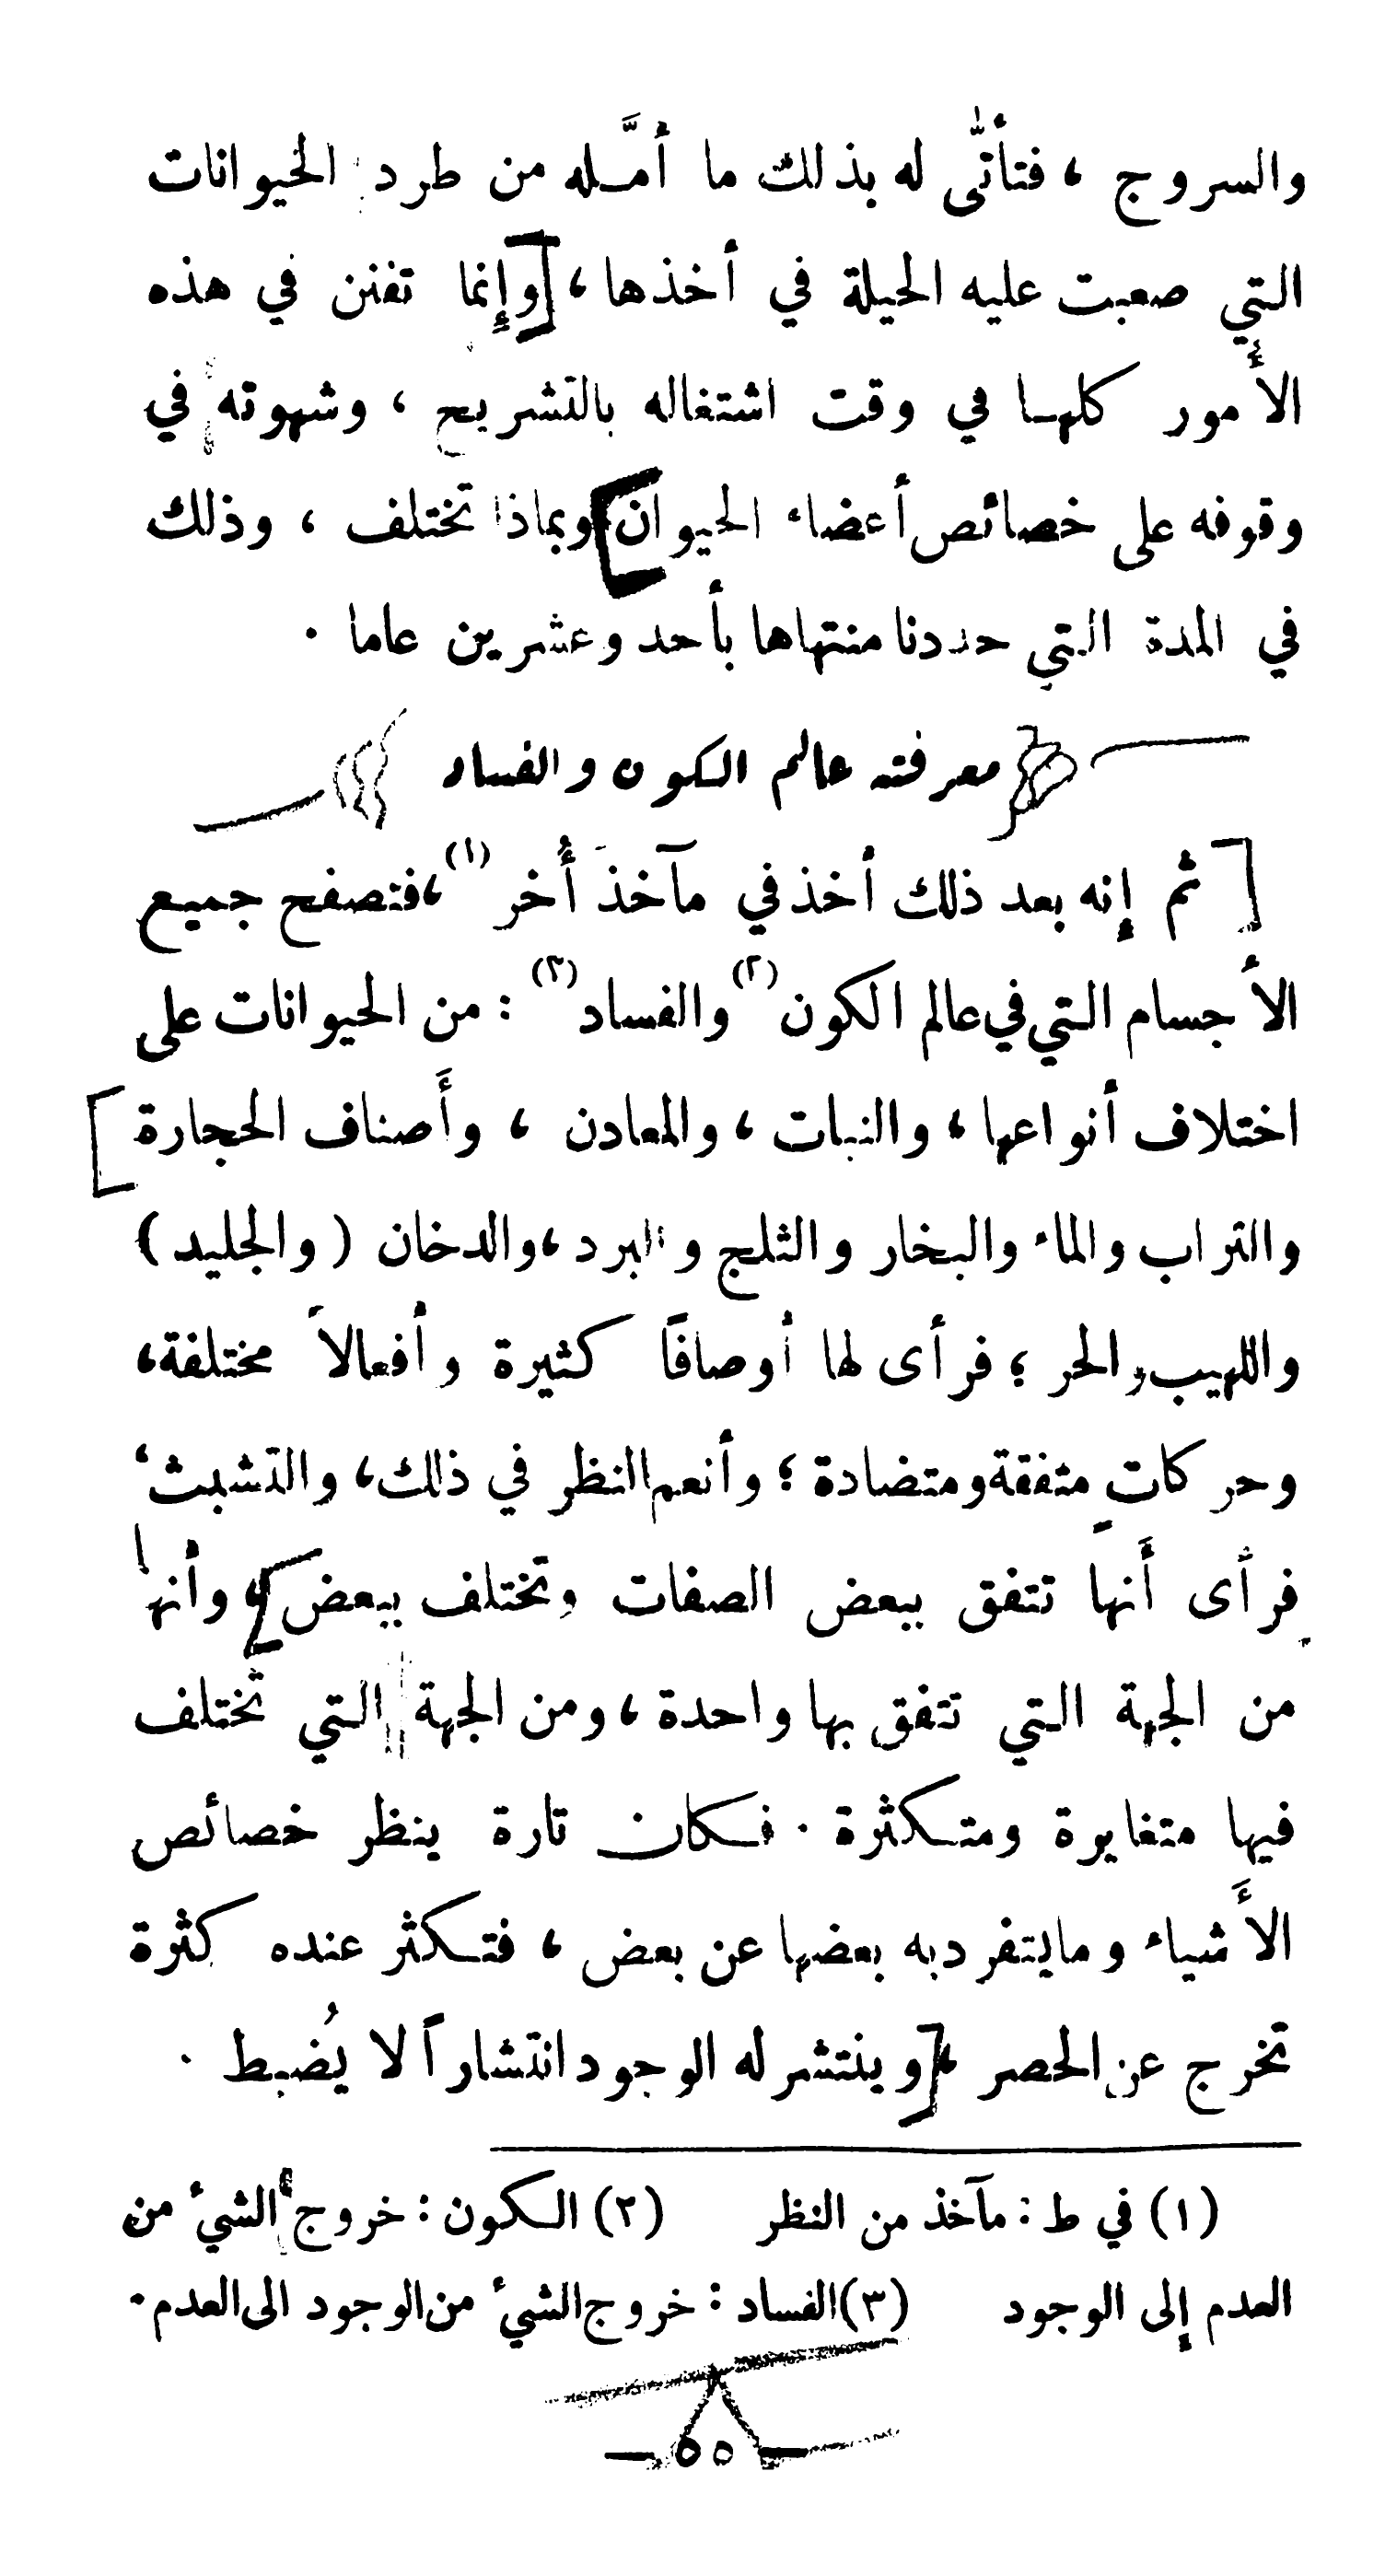 والسروج ، فتأتَّى له بذلك ما أمَّـله من طرد الحيوانات
التي صعبت عليه الحيلة في أخذها ، [وإِنما تفنن في هذه
الأَمور كلهـا في وقت اشتغاله بالتشريح ، وشهوته في
وقوفه على خصائص أعضاء الحيوان] وبماذا تختلف ، وذلك
في المدة التي حددنا منتهاها بأحد وعشرين عاما .
معرفته عالم الكون والفساد
[ثم إِنه بعد ذلك أخذ في مآخذ أُخر (١) ، فتصفح جميع
الأجسام التي في عالم الكون (٢) والفساد (٣) : من الحيوانات على
اختلاف أنواعها ، والنبات ، والمعادن ، وأَصناف الحجارة]
والتراب والماء والبخار والثلج والبرد ، والدخان ( والجليد )
واللهيب والحر ؛ فرأى لها أوصافًا كثيرة وأفعالاً مختلفة ،
وحركاتٍ متفقة ومتضادة ؛ وأنعم النظر في ذلك ، والتشبث ،
فرأى أَنها تتفق ببعض الصفات وتختلف ببعض] ، وأنها
من الجهة التي تتفق بها واحدة ، ومن الجهة التي تختلف
فيها متغايرة ومتـكثرة . فـكان تارة ينظر خصائص
الأَشياء وما يتفرد به بعضها عن بعض ، فتـكثر عنده كثرة
تخرج عن الحصر ، [وينتشر له الوجود انتشاراً لا يُضبط .
(١) في ط : مآخذ من النظر (٢) الـكون : خروج الشيء من
العدم إلى الوجود (٣) الفساد : خروج الشيء من الوجود الى العدم .
— ٥٥ —